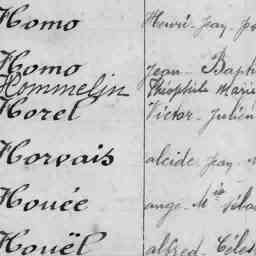 Homo Henri Jean
Homo Jean Baptis
Hommelin Théophile Marie
Horel Victor Julien
Horvais alcide Jean
Houée ange Mie
Houël alfred Céles